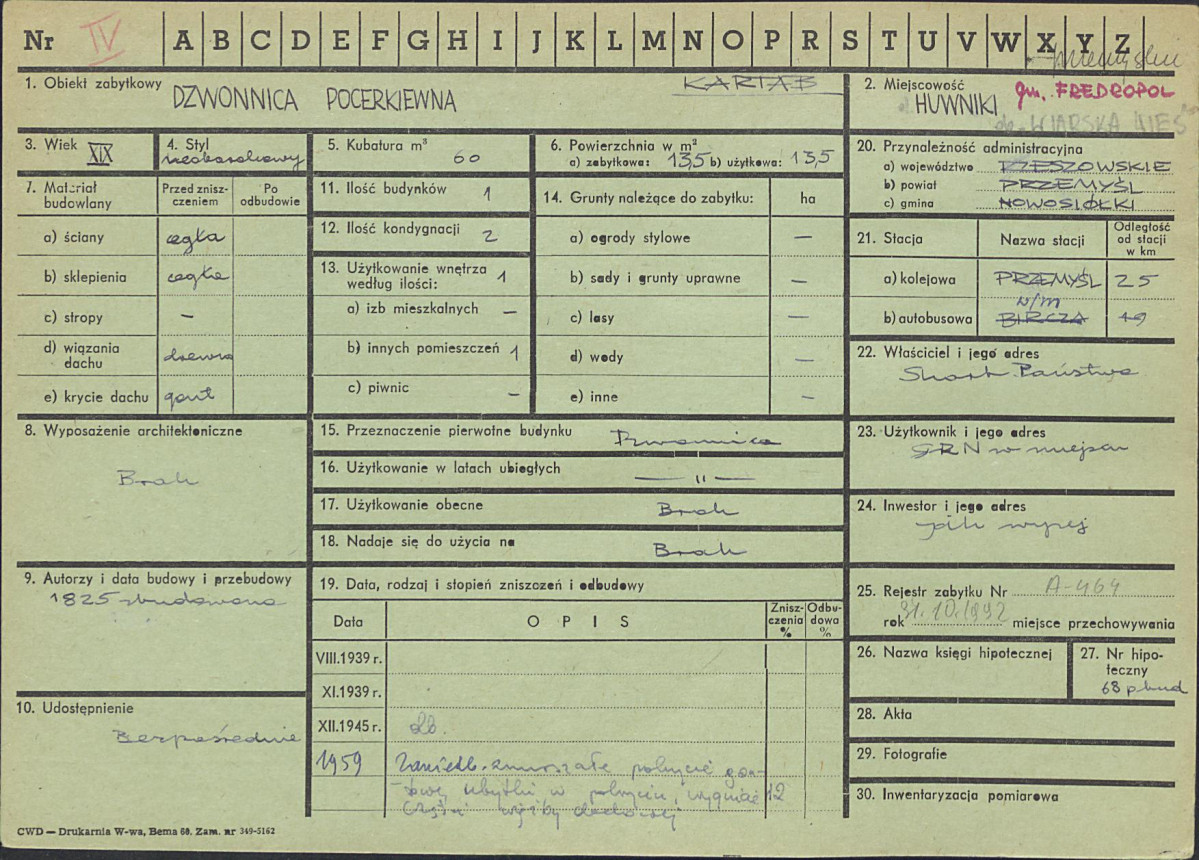 Nr IV A B C D E F G H I J K L M N O P R S T U V W X Y Z
przemyskie
1. Obiekt zabytkowy
KARTA B
DZWONNICA POCERKIEWNA
2. Miejscowość
HUWNIKI gm. FREDROPOL
3. Wiek XIX
4. Styl
neobarokowy
5. Kubatura m³
60
6. Powierzchnia w m²
a) zabytkowa: 13,5 b) użytkowa: 13,5
20. Przynależność administracyjna
a) województwo RZESZOWSKIE
b) powiat PRZEMYŚL
c) gmina NOWOSIÓŁKI
7. Materiał budowlany
Przed zniszczeniem
Po odbudowie
a) ściany cegła
b) sklepienia cegła
c) stropy –
d) wiązania dachu drewno
e) krycie dachu gont
11. Ilość budynków 1
12. Ilość kondygnacji 2
13. Użytkowanie wnętrza według ilości: 1
a) izb mieszkalnych –
b) innych pomieszczeń 1
c) piwnic –
14. Grunty należące do zabytku: ha
a) ogrody stylowe –
b) sady i grunty uprawne –
c) lasy –
d) wody –
e) inne –
21. Stacja
Nazwa stacji
Odległość od stacji w km
a) kolejowa PRZEMYŚL 25
w/m
b) autobusowa BIRCZA 19
22. Właściciel i jego adres
Skarb Państwa
8. Wyposażenie architektoniczne
Brak
15. Przeznaczenie pierwotne budynku Dzwonnica
16. Użytkowanie w latach ubiegłych — " —
17. Użytkowanie obecne Brak
18. Nadaje się do użycia na Brak
23. Użytkownik i jego adres
GRN w miejscu
24. Inwestor i jego adres
jak wyżej
9. Autorzy i data budowy i przebudowy
1825 zbudowana
19. Data, rodzaj i stopień zniszczeń i odbudowy
Data
OPIS
Zniszczenia %
Odbudowa %
VIII.1939 r.
XI.1939 r.
XII.1945 r. db.
1959 Zaniedb. zmurszałe pokrycie gon-
towe, ubytki w pokryciu, wygniłe 12
części więźby dachowej
25. Rejestr zabytku Nr A-464
rok 31.10.1992 miejsce przechowywania
26. Nazwa księgi hipotecznej
27. Nr hipoteczny
68 p.bud
10. Udostępnienie
Bezpośrednie
28. Akta
29. Fotografie
30. Inwentaryzacja pomiarowa
CWD — Drukarnia W-wa, Bema 60. Zam. nr 349-5162